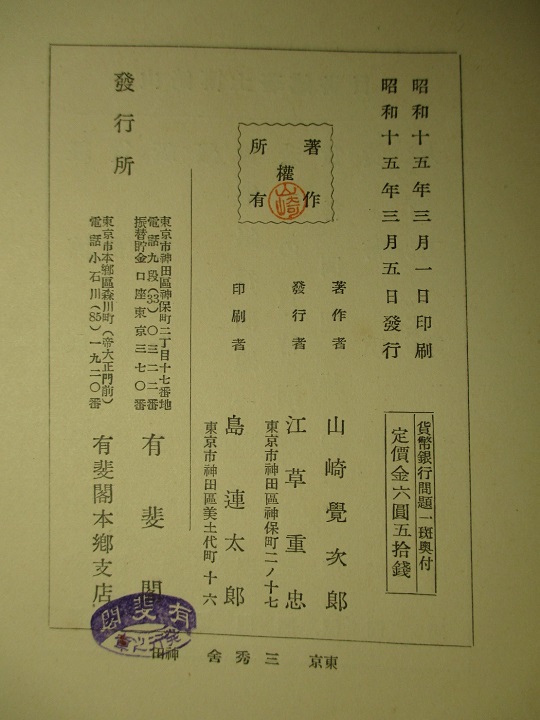 昭和十五年三月一日印刷
昭和十五年三月五日發行
貨幣銀行問題一斑奥付
定價金六圓五拾錢
著作
權
所有
山崎
著作者 山崎覺次郎
發行者 江草重忠
東京市神田區神保町二ノ十七
印刷者 島連太郎
東京市神田區美土代町十六
發行所
東京市神田區神保町二丁目十七番地
電話九段(33)〇三二二番
振替貯金口座東京三七〇番
有斐閣
東京市本鄕區森川町(帝大正門前)
電話小石川(85)一九二〇番
有斐閣本鄕支店
有斐閣
東京 三秀舍 神田